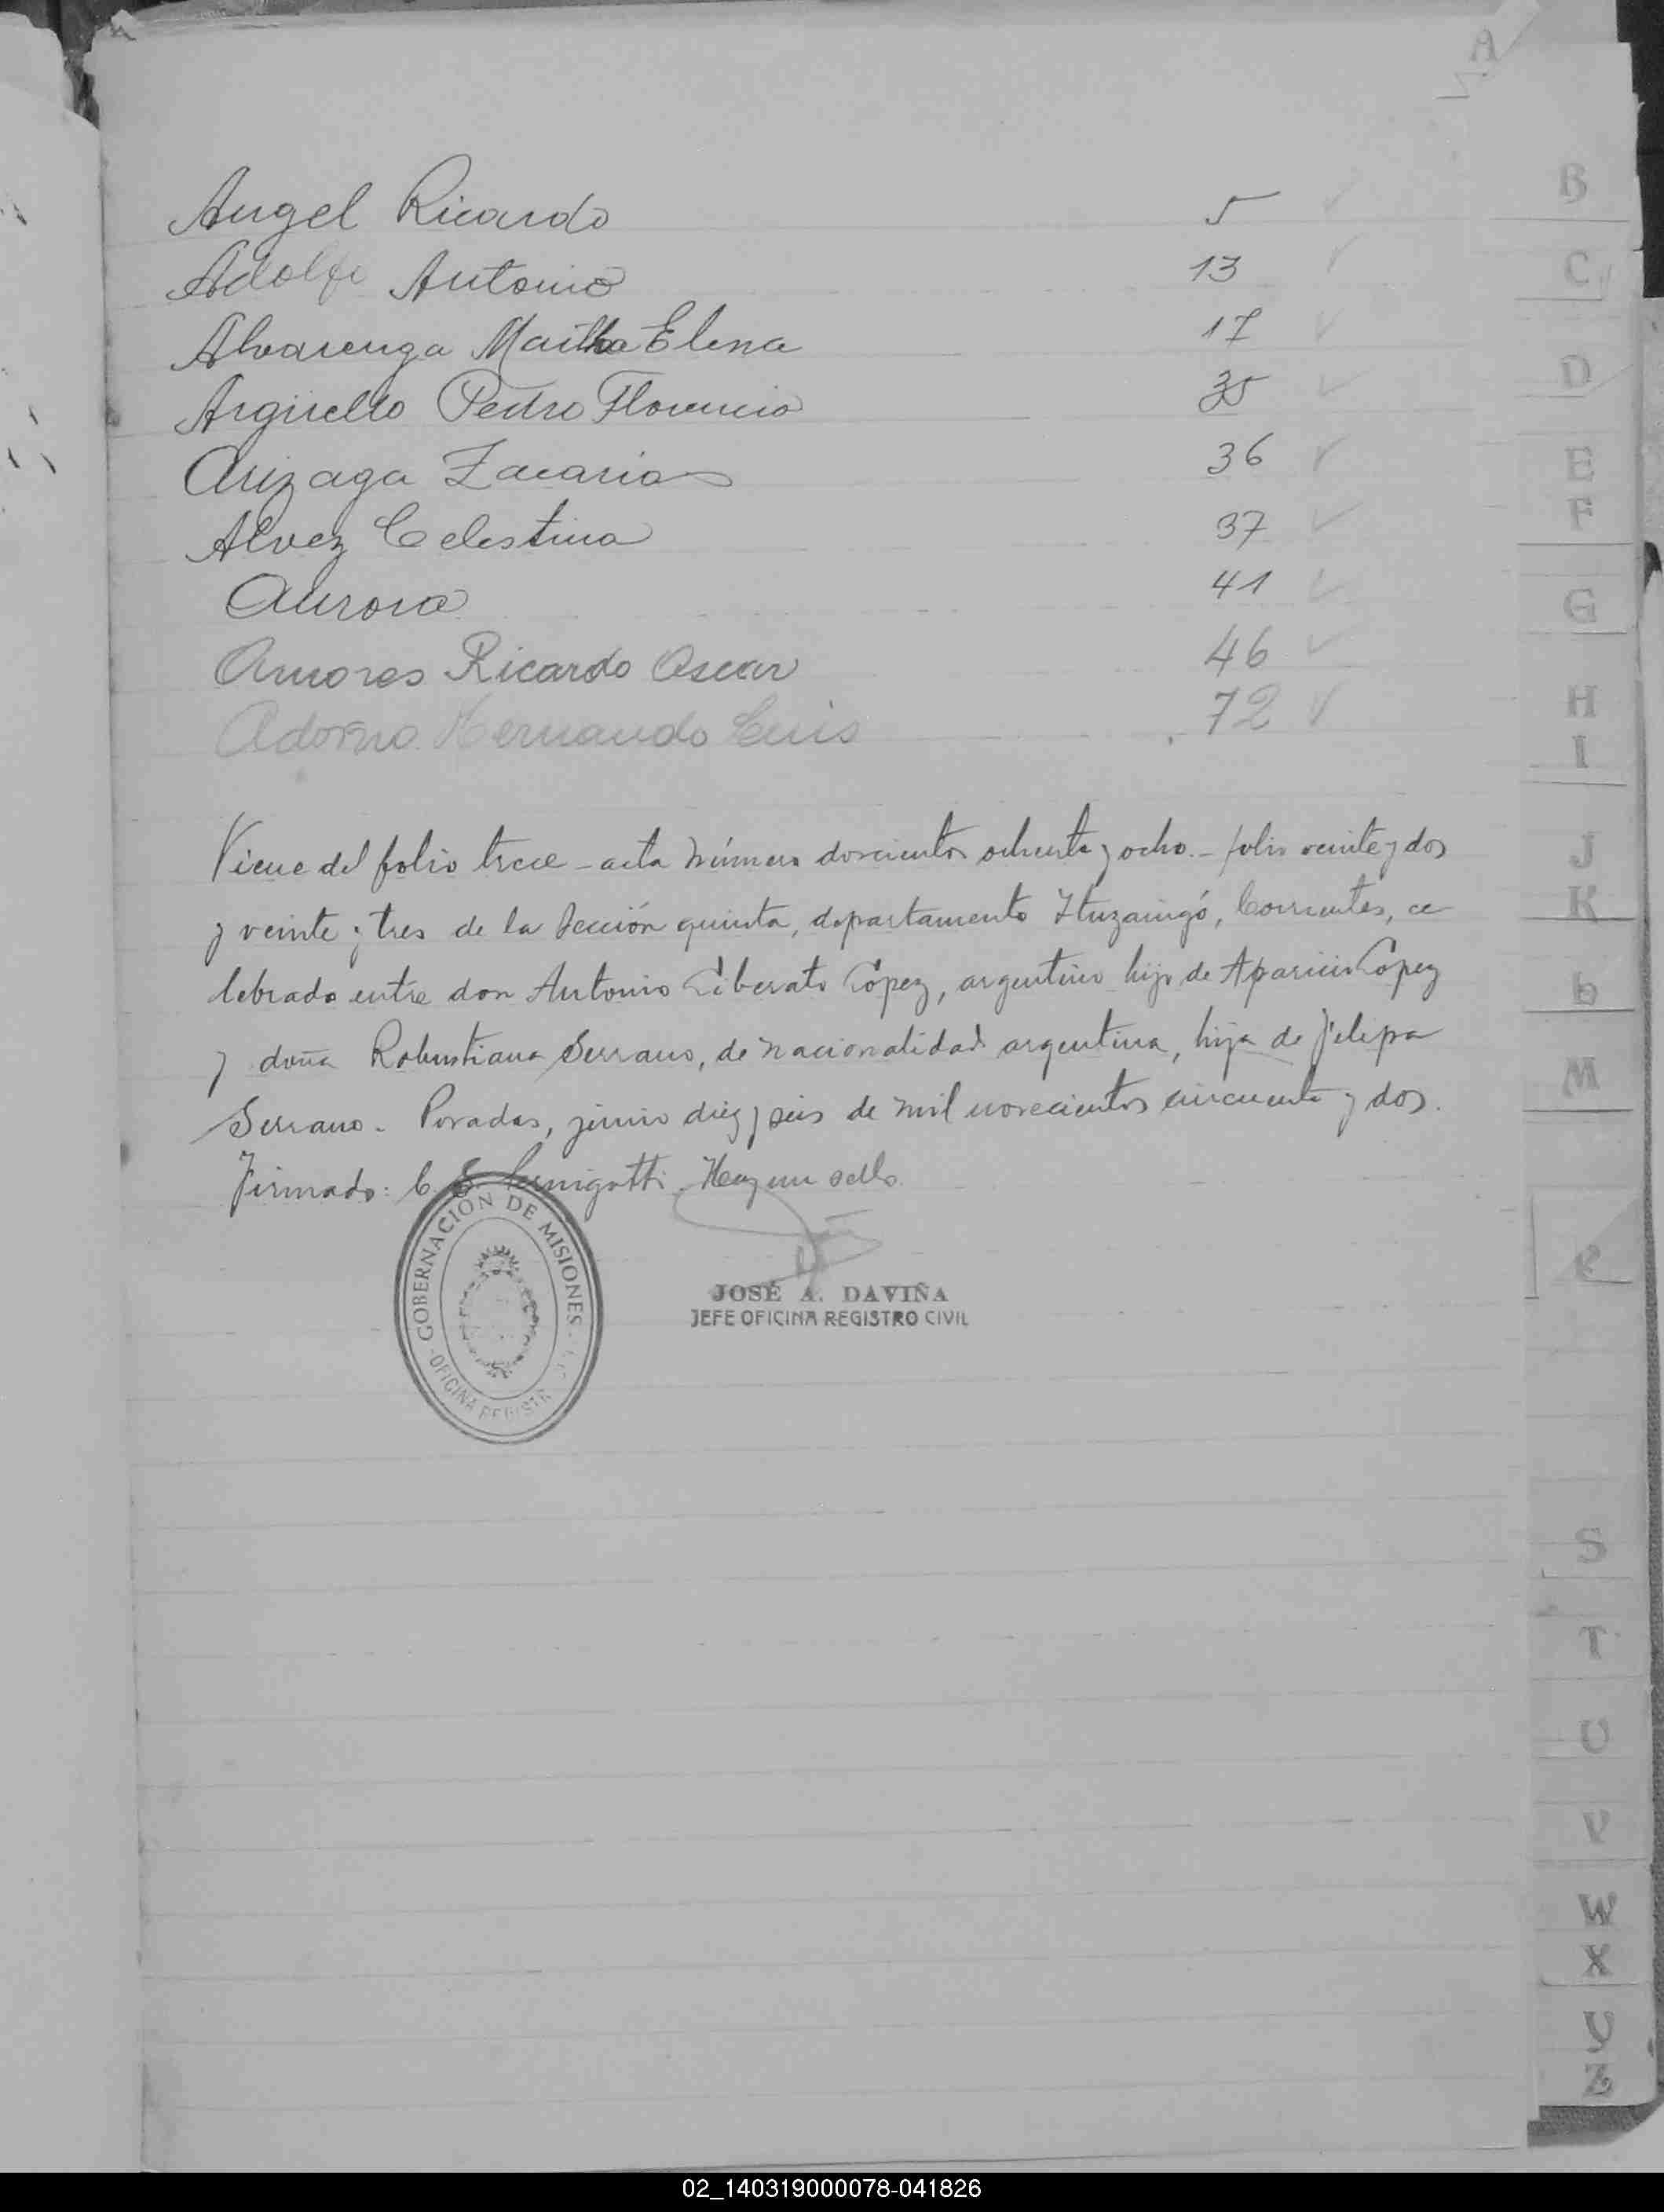 A
Angel Ricardo 5 ✓
Adolfo Antonio 13 ✓
Alvarenga Martha Elena 17 ✓
Argüello Pedro Florencio 35 ✓
Arizaga Zacarias 36 ✓
Alvez Celestina 37 ✓
Aurora 41 ✓
Amores Ricardo Oscar 46 ✓
Adorno Hernando Luis 72 ✓
Viene del folio trece - acta número doscientos ochenta y ocho. - folio veinte y dos
y veinte y tres de la Sección quinta, departamento Ituzaingó, Corrientes, ce
lebrado entre don Antonio Liberato López, argentino hijo de Aparicio López
y doña Robustiana Serrano, de nacionalidad argentina, hija de Felipa
Serrano. Posadas, junio diez y seis de mil novecientos cincuenta y dos.
Firmado: C. Hay un sello.
GOBERNACIÓN DE MISIONES
OFICINA REGISTR
JOSÉ A. DAVIÑA
JEFE OFICINA REGISTRO CIVIL
B
C
D
E
F
G
H
I
J
K
M
R
S
T
U
V
W
X
Z
02_140319000078-041826